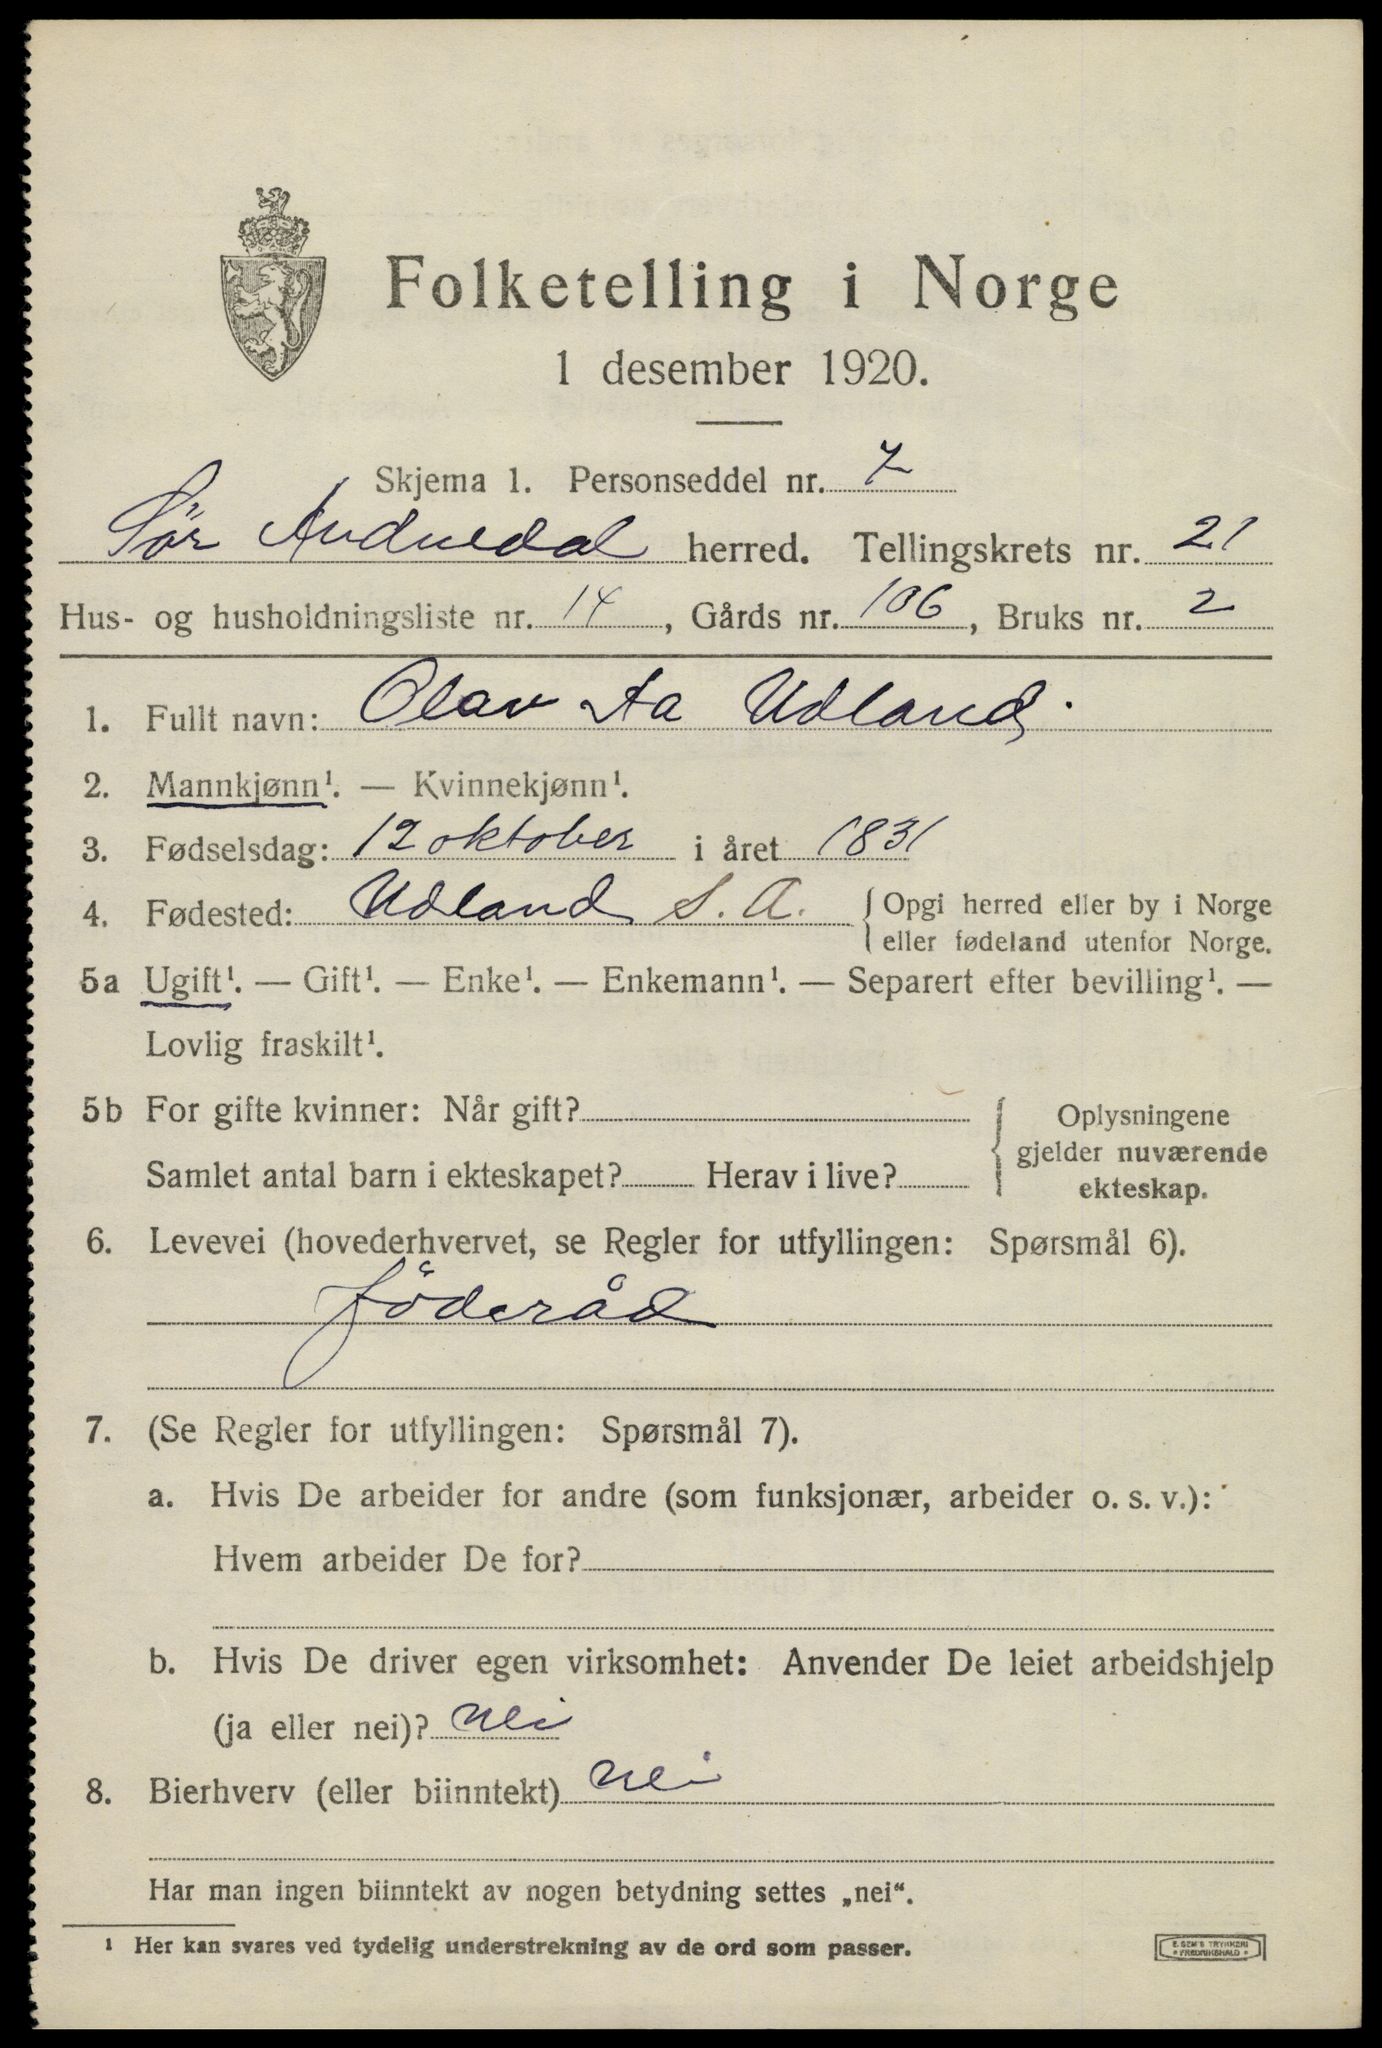 Folketelling i Norge
1 desember 1920.
Skjema 1. Personseddel nr. 7
Sör Audnedal herred. Tellingskrets nr. 21
Hus- og husholdningsliste nr. 14, Gårds nr. 106, Bruks nr. 2
1. Fullt navn: Olav Aa Udland.
2. Mannkjønn¹. — Kvinnekjønn¹.
3. Fødselsdag: 12 oktober i året 1831
4. Fødested: Udland S. A. { Opgi herred eller by i Norge
eller fødeland utenfor Norge.
5a Ugift¹. — Gift¹. — Enke¹. — Enkemann¹. — Separert efter bevilling¹. —
Lovlig fraskilt¹.
5b For gifte kvinner: Når gift?
Samlet antal barn i ekteskapet? Herav i live?
Oplysningene
gjelder nuværende
ekteskap.
6. Levevei (hovederhvervet, se Regler for utfyllingen: Spørsmål 6).
föderåd
7. (Se Regler for utfyllingen: Spørsmål 7).
a. Hvis De arbeider for andre (som funksjonær, arbeider o. s. v.):
Hvem arbeider De for?
b. Hvis De driver egen virksomhet: Anvender De leiet arbeidshjelp
(ja eller nei)? nei
8. Bierhverv (eller biinntekt) nei
Har man ingen biinntekt av nogen betydning settes „nei“.
¹ Her kan svares ved tydelig understrekning av de ord som passer.
E. SEM'S TRYKKERI
• FREDRIKSHALD •